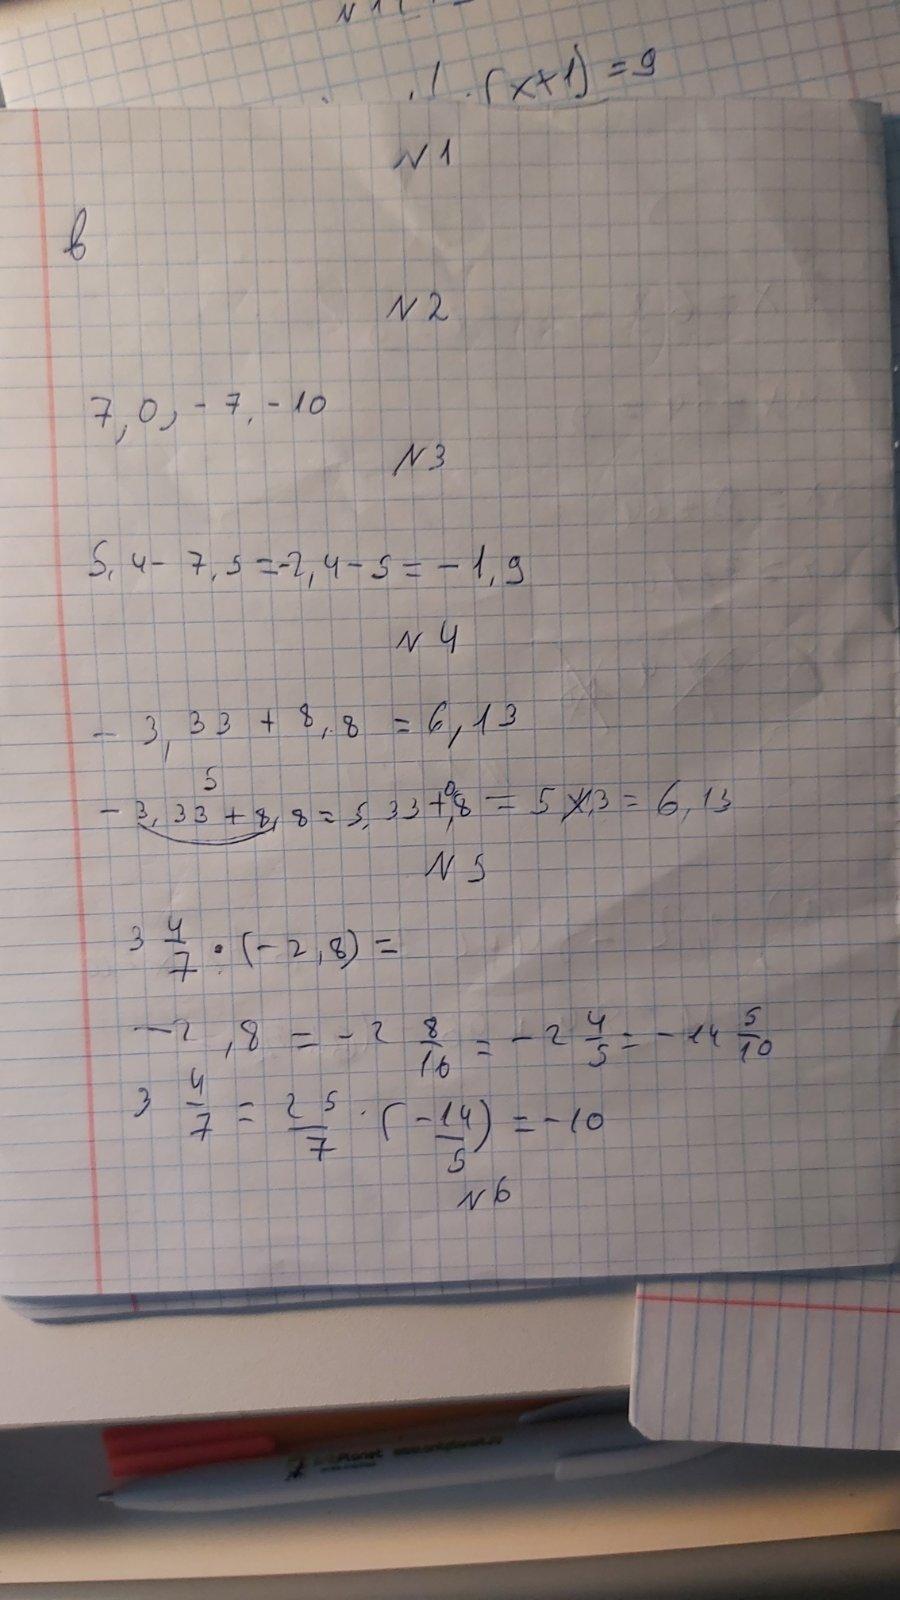 N 11
. (x+1) = 9
N 1
в
N 2
7, 0, - 7, - 10
N 3
5, 4 - 7, 5 = -2, 4 - 5 = - 1, 9
N 4
- 3, 33 + 8, 8 = 6, 13
5
- 3, 33 + 8, 8 = 5, 33 + 0,8 = 5 1,3 = 6, 13
N 5
3 4/7 · (- 2, 8) =
- 2, 8 = - 2 8/10 = - 2 4/5 = - 14 5/10
3 4/7 = 25/7 · (- 14/5) = - 10
N 6